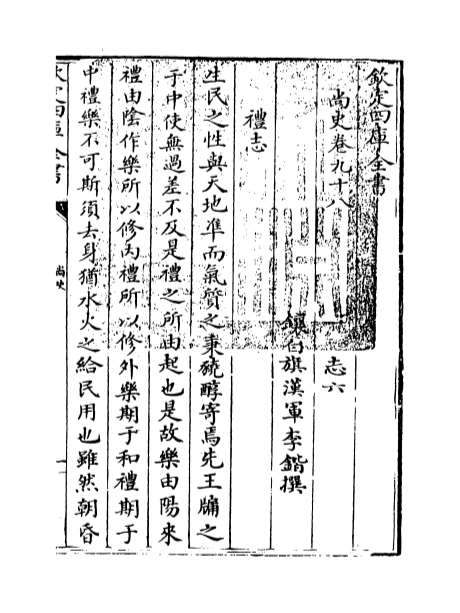 欽定四庫全書
尚史卷九十八
志六
鑲白旗漢軍李鍇撰
禮志
生民之性與天地準而氣質之稟磽醇寄焉先王牖之
于中使無過差不及是禮之所由起也是故樂由陽來
禮由陰作樂所以修内禮所以修外樂期于和禮期于
中禮樂不可斯須去身猶水火之給民用也雖然朝昏
欽定四庫全書
尚史
一